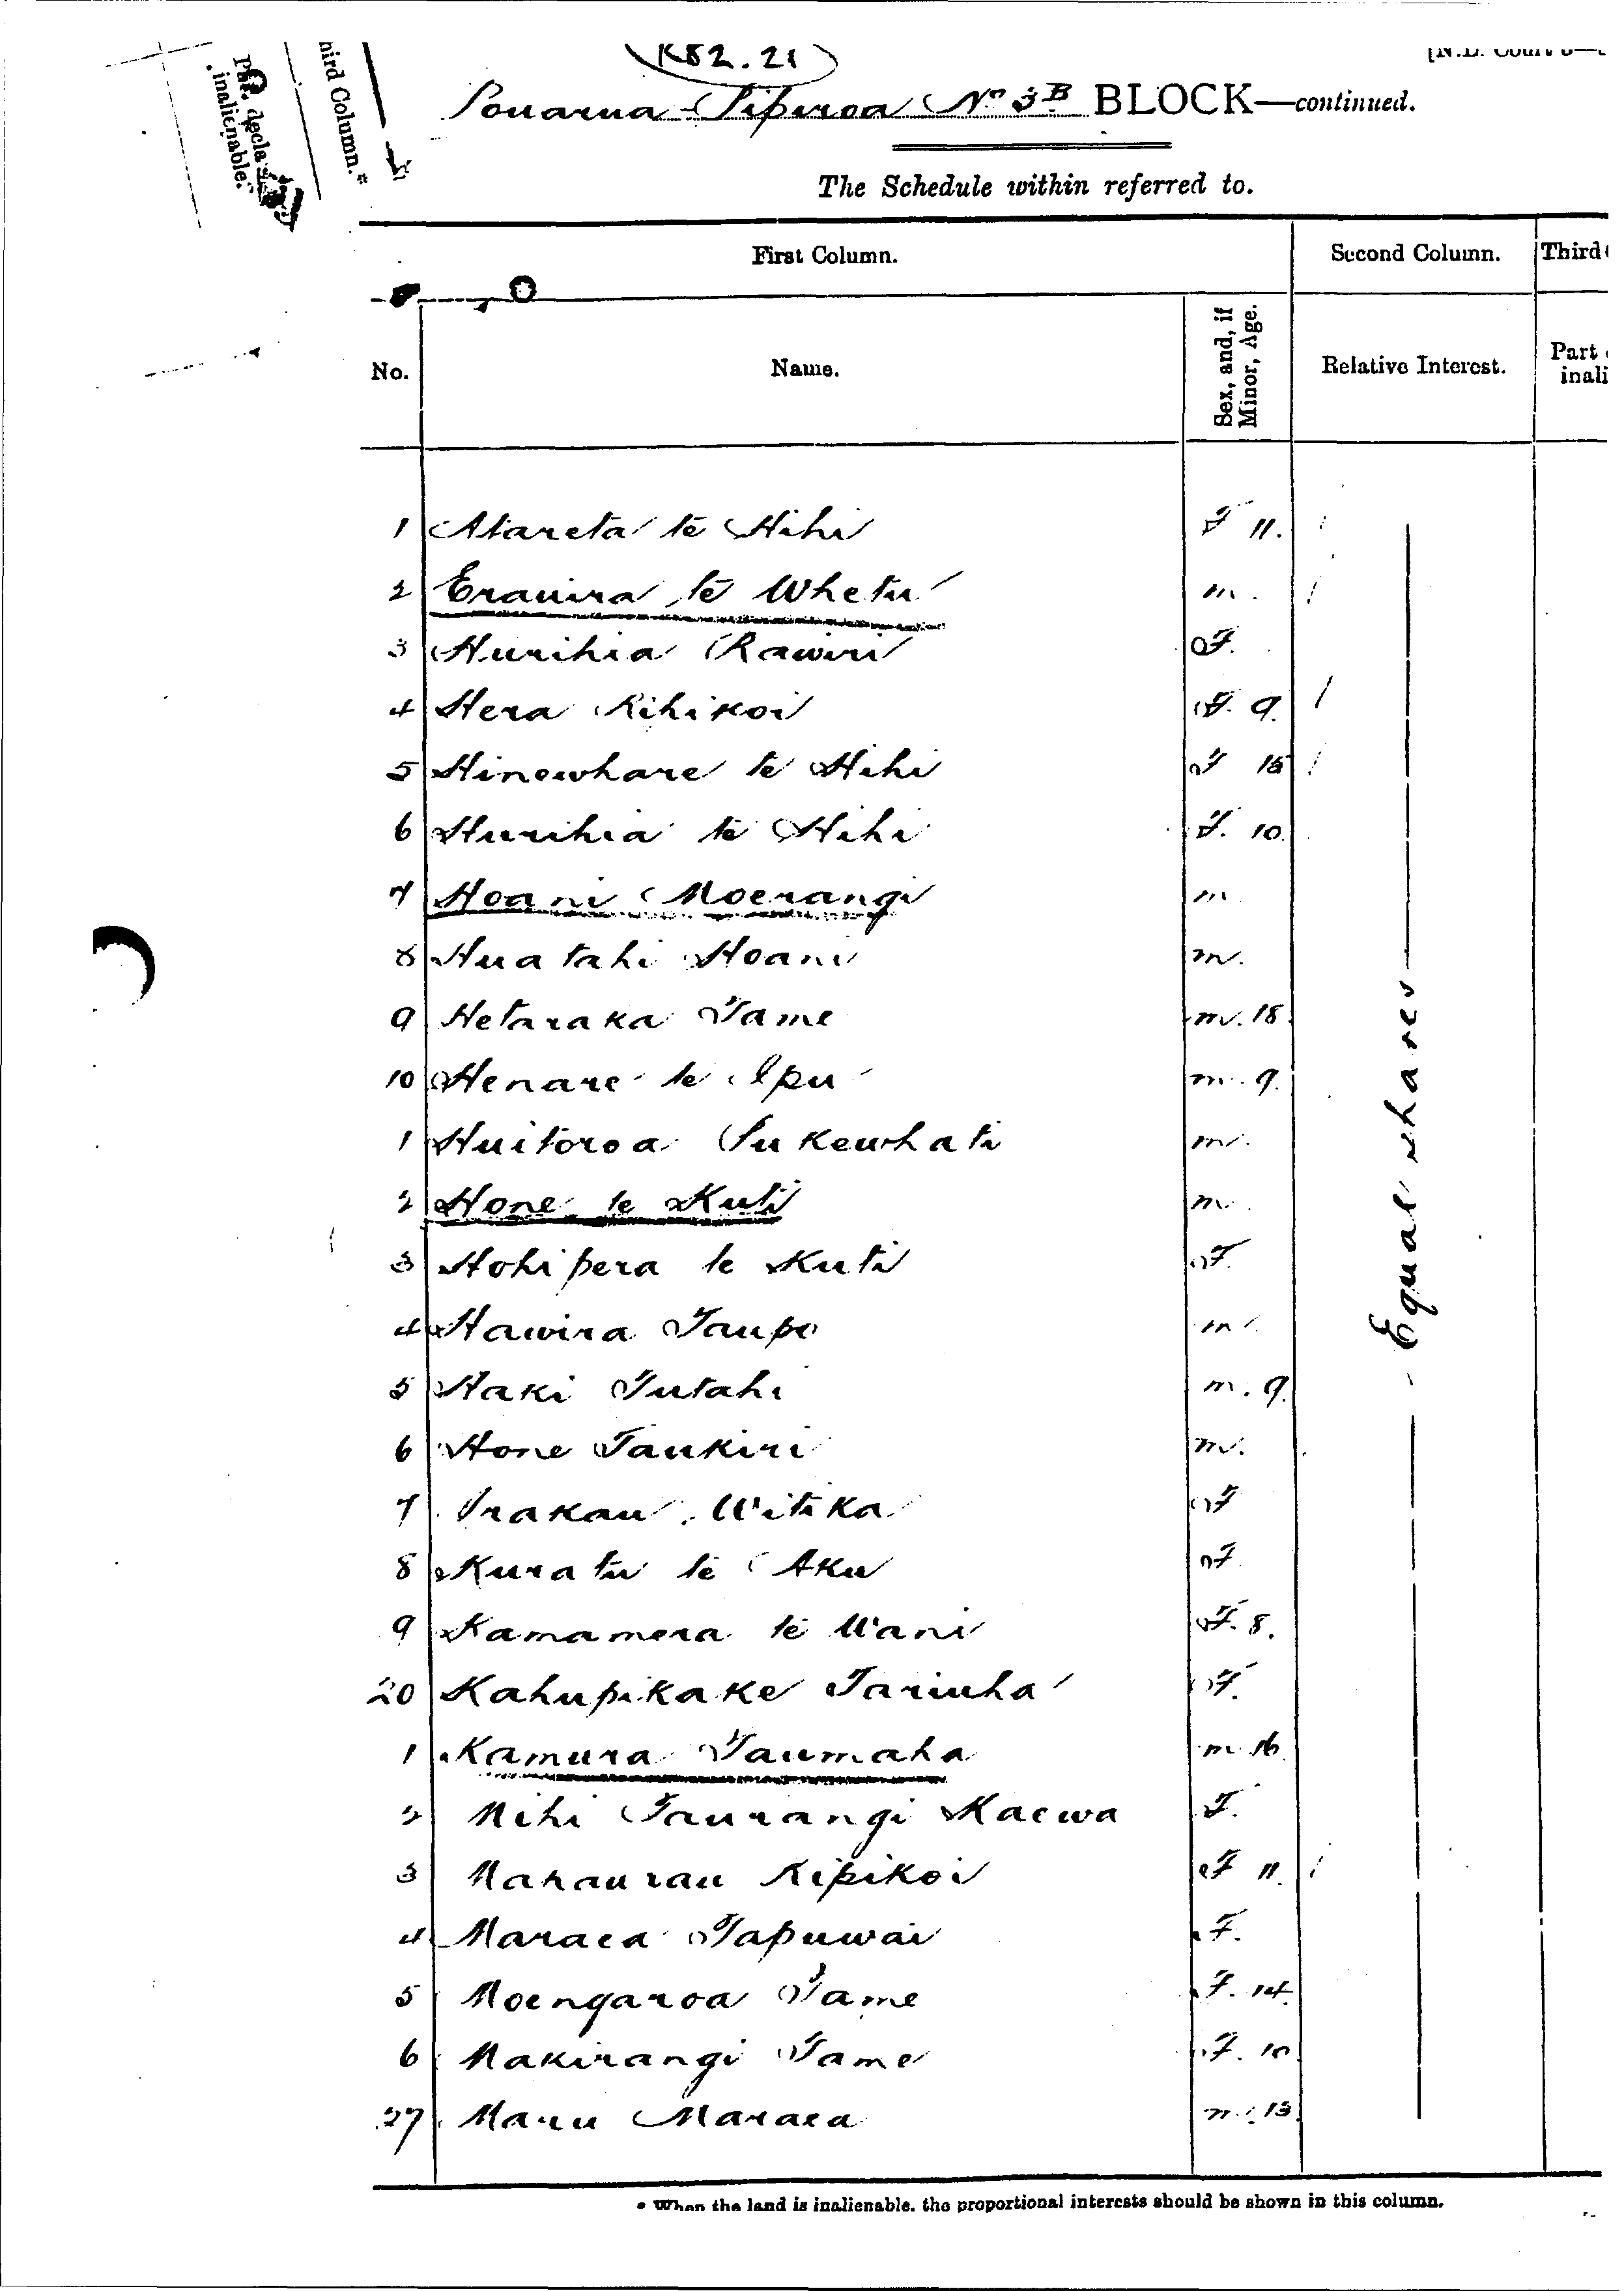 K52.21
[N.L. Court 8—
Pouarua-Pipiroa No 3B BLOCK—continued.
The Schedule within referred to.
Third Column.*
Part decla
inalienable.
First Column. Second Column. Third
No. Name. Sex, and, if Minor, Age. Relative Interest. Part
inali
1 Atareta te Hihi F 11.
2 Eranira te Whetu m.
3 Hurihia Rawiri F.
4 Hera Rihikoi F. 9.
5 Hinewhare te Hihi F 15
6 Hurihia te Hihi F. 10.
7 Hoani Moerangi m
8 Huatahi Hoani m.
9 Hetaraka Tame m. 18.
10 Henare te Ipu m. 9.
1 Huitoroa Pukewhati m.
2 Hone te Kuti m.
3 Hohipera te Kuti F.
4 Hawira Taupo m.
5 Haki Tutahi m. 9.
6 Hone Taukiri m.
7 Irakau Witika F
8 Kuratu te Aku F.
9 Kamamera te Wani F. 8.
20 Kahupikake Tariuha F.
1 Kamura Taumaha m 16.
2 Mihi Taurangi Maewa F.
3 Manaurau Ripikoi F 11.
4 Maraea Tapuwai F.
5 Moengaroa Tame F. 14.
6 Makirangi Tame F. 10
27 Maru Maraea m. 13.
Equal shares
* When the land is inalienable, the proportional interests should be shown in this column.